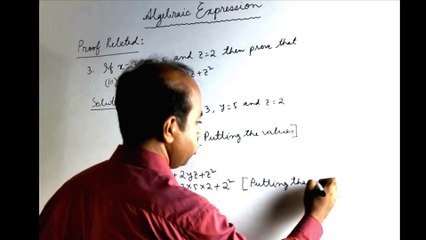 Algebraic Expression
Proof Related:
3. If x 5 and z=2 then prove that
(iii) z²
Solut 3, y=5 and z=2
[Putting the values]
+ 2yz + z²
2×5×2 + 2² [Putting the